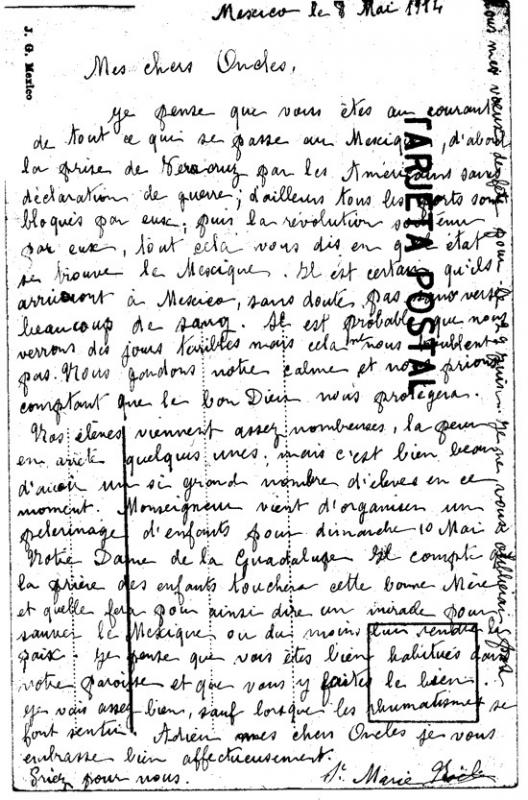 Mexico le 8 Mai 1914
J. G. Mexico
TARJETA POSTAL
Mes chers Oncles,
Je pense que vous êtes au courant
de tout ce qui se passe au Mexique, d'abord
la prise de Veracruz par les Américains sans
déclaration de guerre; d'ailleurs tous les ports sont
bloqués par eux; puis la révolution soutenue
par eux, tout cela vous dis en quel état
se trouve le Mexique. Il est certain qu'ils
arriveront à Mexico, sans doute pas sans verser
beaucoup de sang. Il est probable que nous
verrons des jours terribles mais cela ne nous troublent
pas. Nous gardons notre calme et nous prions
comptant que le bon Dieu nous protègera.
Nos élèves viennent assez nombreuses, la peur
en arrête quelques unes, mais c'est bien beau
d'avoir un si grand nombre d'élèves en ce
moment. Monseigneur vient d'organiser un
pelerinage d'enfants pour dimanche 10 Mai
Notre Dame de la Guadalupe Il compte que
la prière des enfants touchera cette bonne Mère
et quelle fera pour ainsi dire un miracle pour
sauver le Mexique ou du moins lui rendre la
paix. Je pense que vous êtes bien habitués dans
votre paroisse et que vous y faites le bien.
Je vais assez bien, sauf lorsque les rhumatismes se
font sentir. Adieu mes chers Oncles je vous
embrasse bien affectueusement.
Priez pour nous.
Sr Marie
Tous mes voeux de fête pour le 29 juin. Je ne vous oublierai pas